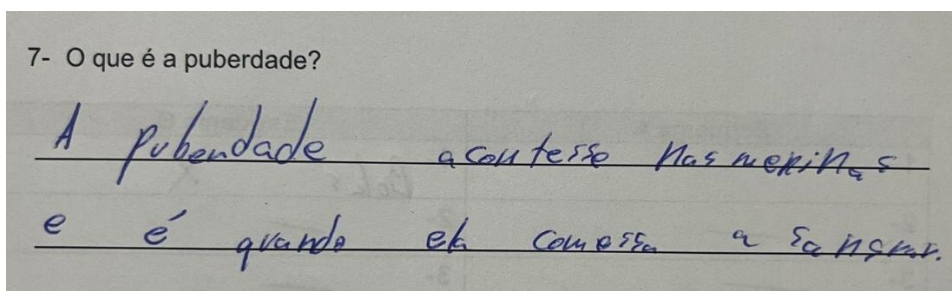 7- O que é a puberdade?
A puberdade acontesse nas meninas
e é quando ela comessa a sangrar.